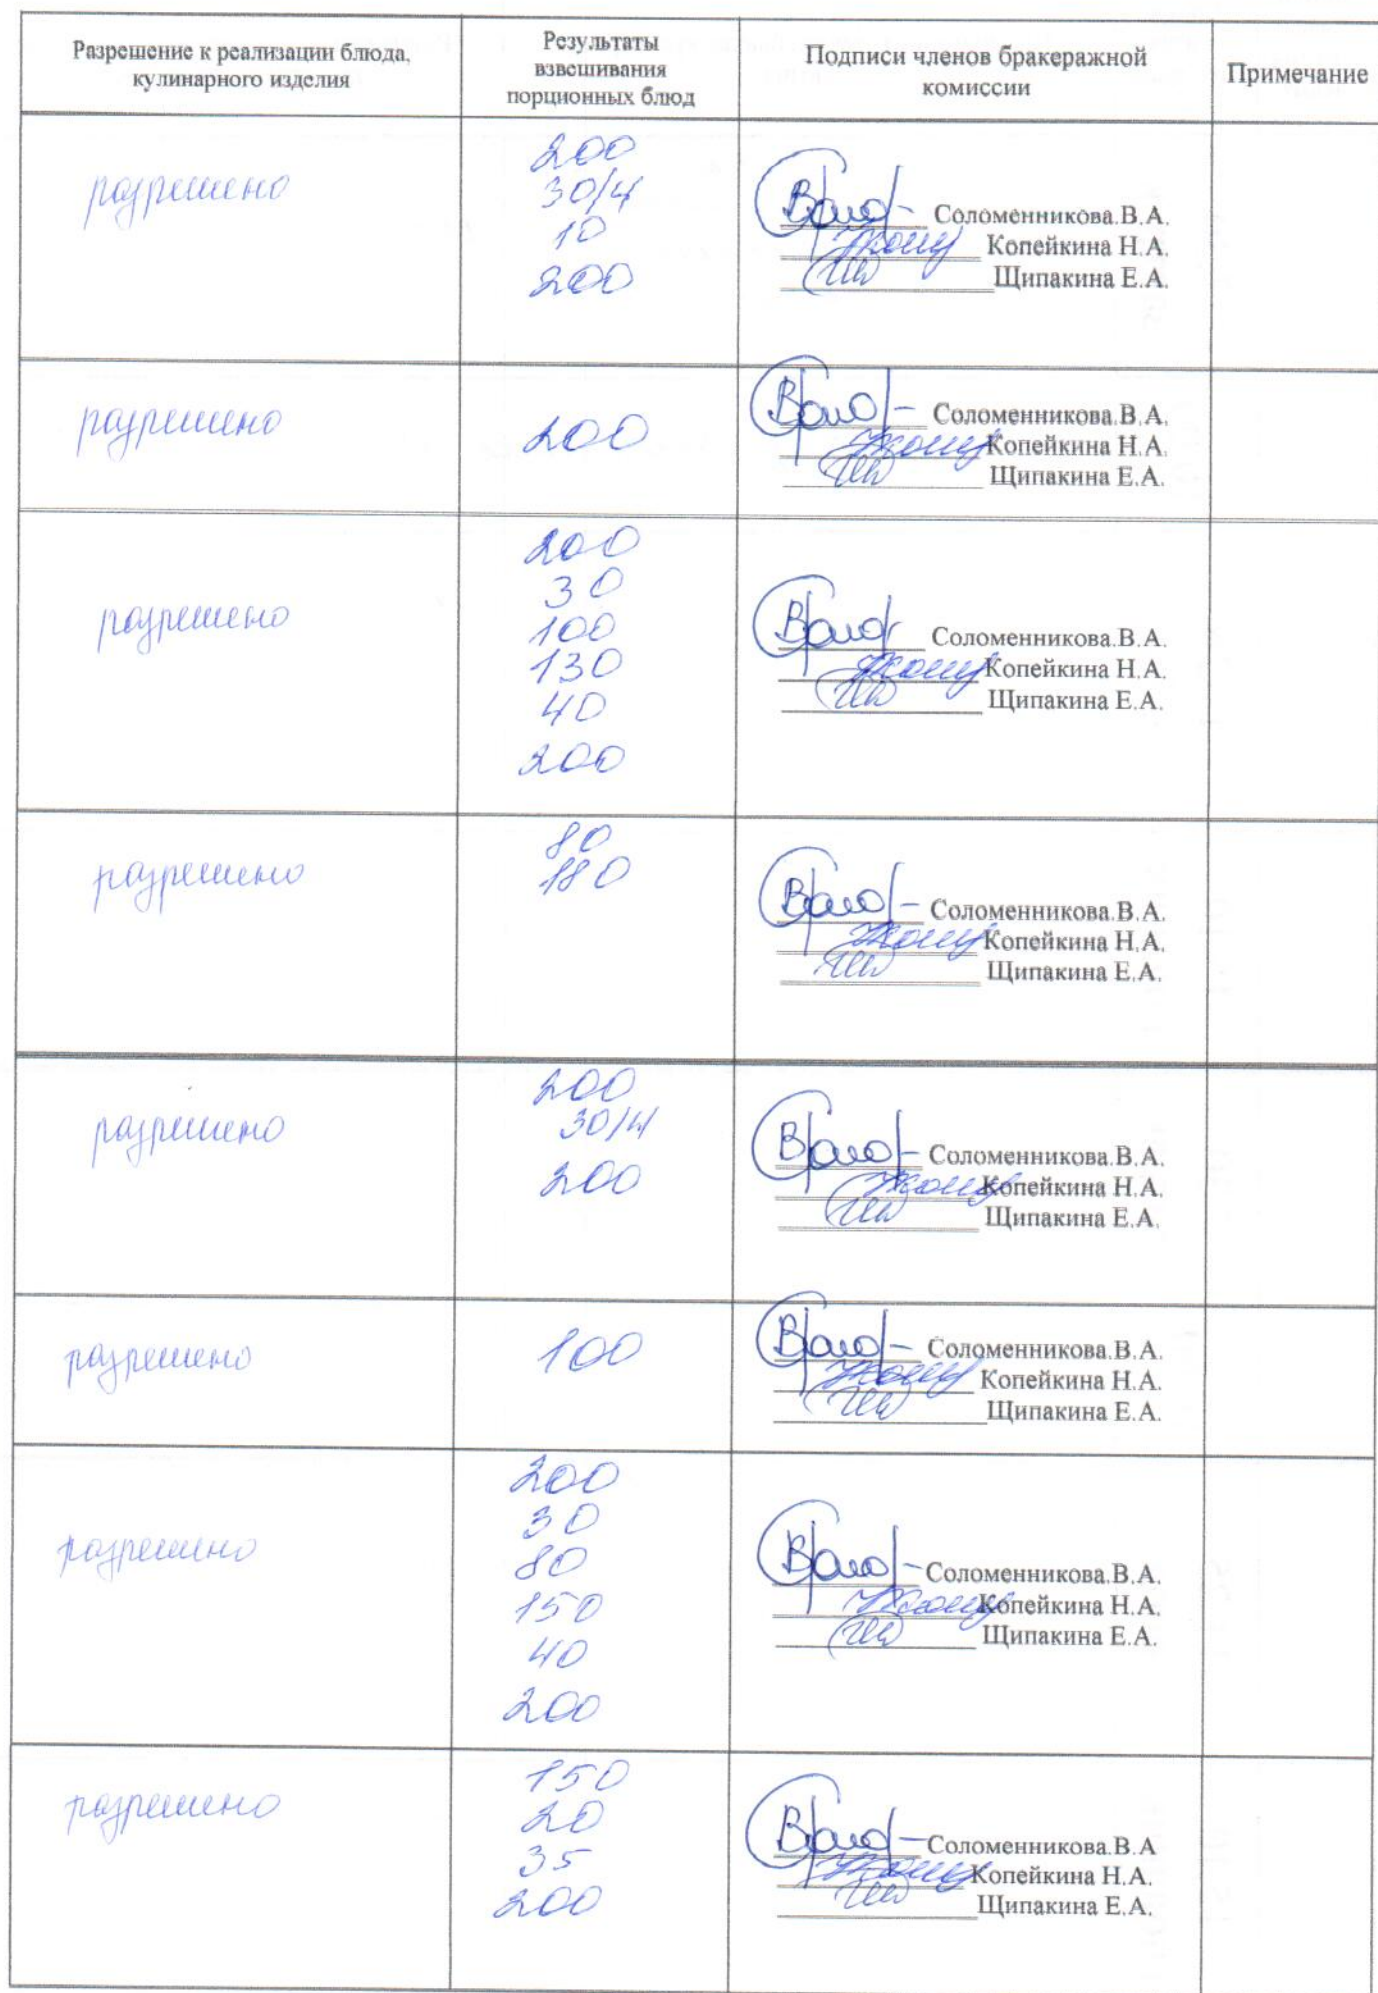 Разрешение к реализации блюда,
кулинарного изделия
Результаты
взвешивания
порционных блюд
Подписи членов бракеражной
комиссии
Примечание
разрешено
200
30/4
10
200
Соломенникова.В.А.
Копейкина Н.А.
Щипакина Е.А.
разрешено
200
Соломенникова.В.А.
Копейкина Н.А.
Щипакина Е.А.
разрешено
200
30
100
130
40
200
Соломенникова.В.А.
Копейкина Н.А.
Щипакина Е.А.
разрешено
80
180
Соломенникова.В.А.
Копейкина Н.А.
Щипакина Е.А.
разрешено
200
30/4
200
Соломенникова.В.А.
Копейкина Н.А.
Щипакина Е.А.
разрешено
100
Соломенникова.В.А.
Копейкина Н.А.
Щипакина Е.А.
разрешено
200
30
80
150
40
200
Соломенникова.В.А.
Копейкина Н.А.
Щипакина Е.А.
разрешено
150
20
35
200
Соломенникова.В.А
Копейкина Н.А.
Щипакина Е.А.